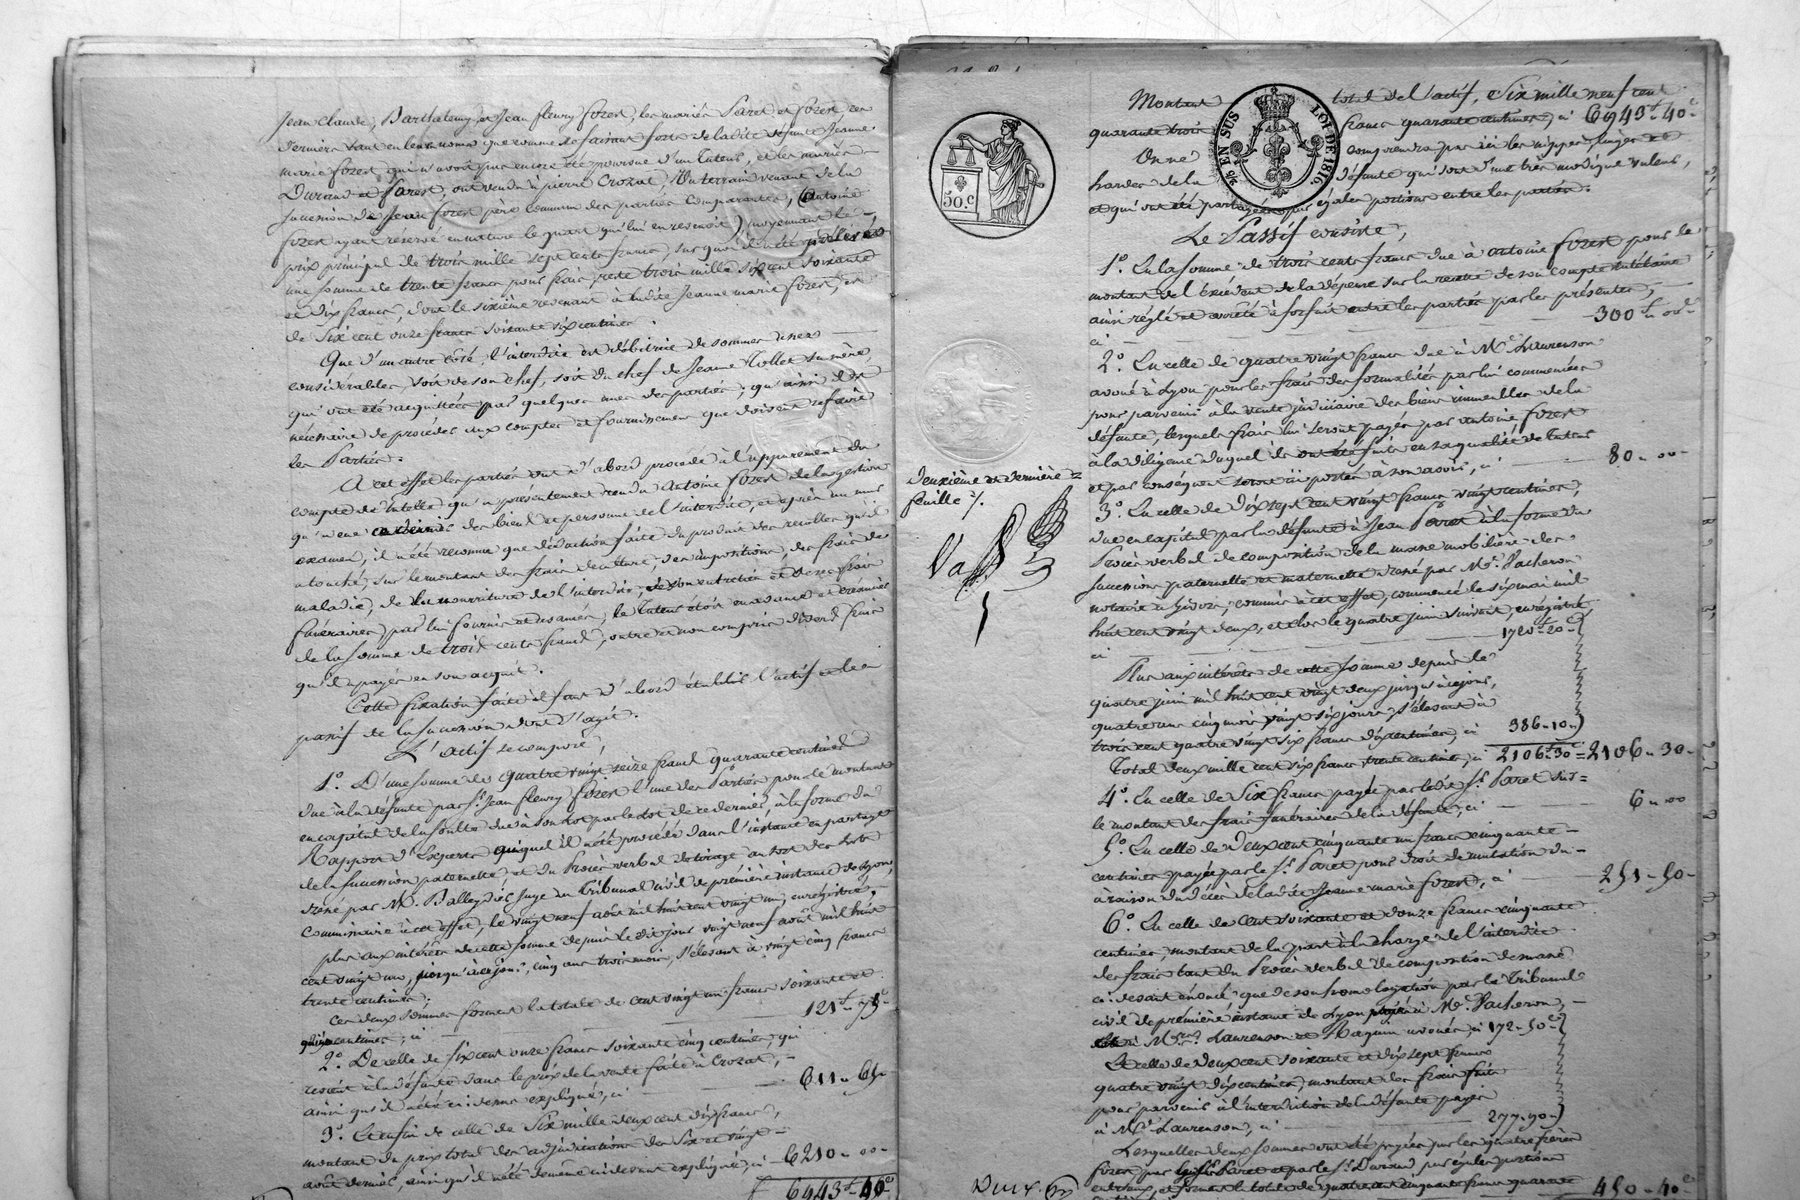 Jean Claude, Barthelemy et Jean fleury forest, les mariés Paret et forest, ces
derniers tant en leurs noms que comme se faisant forts de ladite défunte Jeanne
marie forest qui n'avoit pas encore été pourvue d'un tuteur, et les mariés
Durand et forest, ont vendu à pierre Crozat, un terrain venant de la
succession de Jean forest père commun des parties comparantes, (antoine
forest ayant réservé en nature le quart qui lui en revenoit) moyennant le
prix principal de trois mille sept cents francs, sur quoi il a été
une somme de trente francs pour frais, reste trois mille six cent soixante
et dix francs, dont le sixième revenant à ladite Jeanne marie forest, est
de six cent onze francs soixante six centimes.
Que d'un autre côté, l'interdite est débitrice de sommes assez
considérables, soit de son chef, soit du chef de Jeanne Collet sa mère,
qui ont été acquittées par quelques unes des parties; qu'ainsi il est
nécessaire de procéder aux comptes et fournissement que doivent se faire
les Parties.
A cet effet les parties ont d'abord procédé à l'appurement du
compte de tutelle qu'a présentement rendu Antoine forest de la gestion
qu'il a eue des biens et personne de l'interdite, et après un mur
examen, il a été reconnu que déduction faite du produit des récoltes qu'il
a touché, sur le montant des frais de culture, des impositions, des frais de
maladie, de la nourriture de l'interdite, de son entretien et de ses frais
funéraires, par lui fournis et payés, le tuteur étoit en avance et créancier
de la somme de trois cents francs, outre et non compris divers frais
qu'il a payés en son acquit.
Cette fixation faite il faut d'abord établir l'actif et le
passif de la succession dont s'agit.
L'actif se compose,
1º. D'une somme de quatre vingt seize francs quarante centimes
due à la défunte par Sr. Jean fleury forest l'une des Parties, pour le montant
en capital de la soulte due à son lot par le lot de ce dernier, à la forme du
Rapport d'Experts auquel il a été procédé dans l'instance en partage
de la succession paternelle, et du Procès verbal de tirage au sort des lots
dressé par Mr. Balleydier Juge au Tribunal civil de première instance de Lyon,
commissaire à cet effet, le vingt neuf août mil huit cent vingt un, enregistré,
plus aux intérêts de cette somme depuis le dit jour vingt neuf août mil huit
cent vingt un, jusqu'à ce jour, cinq ans trois mois, s'élevant à vingt cinq francs
trente centimes;
ces deux sommes forment la totale de cent vingt un francs soixante et
quinze centimes, ci 121f 75c
2º. De celle de six cent onze francs soixante cinq centimes, qui
revient à la défunte dans le prix de la vente faite à Crozat,
ainsi qu'il a été ci-dessus expliqué, ci 611 " 65 "
3º. Et enfin de celle de six mille deux cent dix francs,
montant du prix total des adjudications des six et vingt
août dernier, ainsi qu'il a été de même ci devant expliqué, ci 6210 " 00 "
6943f 40c
50.c
25 EN SUS
LOI DE 1816.
Deuxième et dernière
feuille ./.
Montant total de l'actif, six mille neuf cent
quarante trois francs quarante centimes, ci 6943f 40c
On ne comprendra pas ici les nippes, linges et
hardes de la défunte qui sont d'une très modique valeur,
et qui ont été partagées par égales portions entre les parties.
Le Passif consiste,
1º. En la somme de trois cents francs due à antoine forest pour le
montant de l'excédent de la dépense sur la recette de son compte tutélaire
ainsi réglé et arrêté à forfait entre les parties par les présentes,
ci 300f 00c
2º. En celle de quatre vingt francs due à Me. Laurenson
avoué à Lyon pour les frais des formalités par lui commencées
pour parvenir à la vente judiciaire des biens immeubles de la
défunte, lesquels frais lui seront payés par antoine forest
à la diligence duquel ils ont été faits en sa qualité de tuteur
et par conséquent seront ici portés à son avoir, ci 80 " 00 "
3º. En celle de dix sept cent vingt francs vingt centimes,
due en capital par la défunte à Jean Paret à la forme du
Procès verbal de composition de la masse mobilière des
successions paternelle et maternelle dressé par Me. Vacheron
notaire à Givors, commis à cet effet, commencé le six mai mil
huit cent vingt deux, et clos le quatre juin suivant, enregistré,
ci 1720f 20c
Plus aux intérêts de cette somme depuis le
quatre juin mil huit cent vingt deux jusqu'à ce jour,
quatre ans cinq mois vingt six jours, s'élevant à
trois cent quatre vingt six francs dix centimes, ci 386 " 10 "
Total deux mille cent six francs trente centimes, ci 2106f 30c 2106 " 30 "
4º. En celle de six francs payée par ledit Sr. Paret sur
le montant des frais funéraires de la défunte, ci 6 " 00
5º. En celle de deux cent cinquante un francs cinquante
centimes payée par le Sr. Paret pour droit de mutation du
à raison du décès de ladite Jeanne marie forest, ci 251 " 50 "
6º. En celle de cent soixante et douze francs cinquante
centimes, montant de la part à la charge de l'interdite
des frais tant du Procès verbal de composition de masse
ci devant énoncé que de son homologation par le Tribunal
civil de première instance de Lyon payés à Me. Vacheron,
et à Mes. Laurenson et Raquin avoués, ci 172 " 50c
Et celle de deux cent soixante et dix sept francs
quatre vingt dix centimes, montant des frais faits
pour parvenir à l'interdiction de la défunte payés
à Me. Laurenson, ci 277 " 90 "
Lesquelles deux sommes ont été payées par les quatre frères
forest, par Sr. Paret et par le Sr. Durand par égales portions
entr'eux, et forment le total de quatre cent cinquante francs quarante
450 " 40c